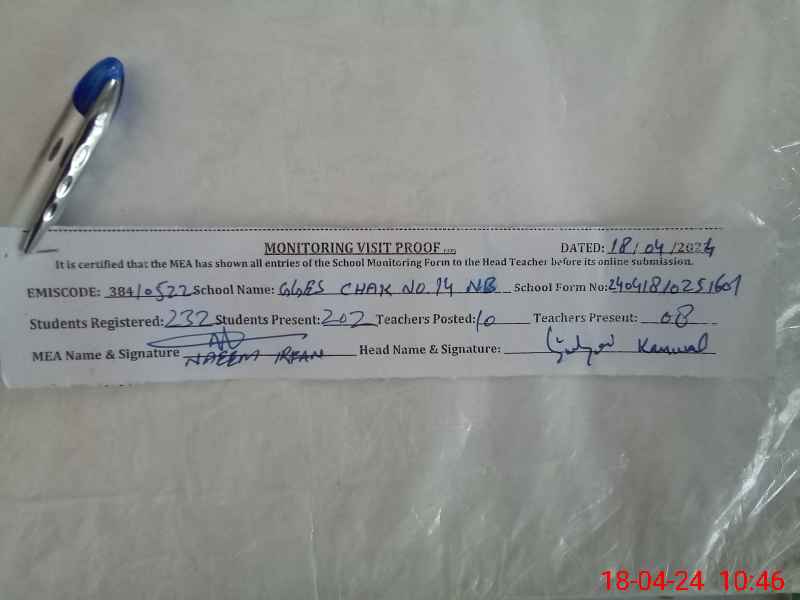 MONITORING VISIT PROOF DATED: 18/04/2024
It is certified that the MEA has shown all entries of the School Monitoring Form to the Head Teacher before its online submission.
EMISCODE: 38410522 School Name: GGES CHAK NO 14 NB School Form No: 24041810251601
Students Registered: 232 Students Present: 202 Teachers Posted: 10 Teachers Present: 08
MEA Name & Signature NAEEM IRFAN Head Name & Signature: Kanwal
18-04-24 10:46